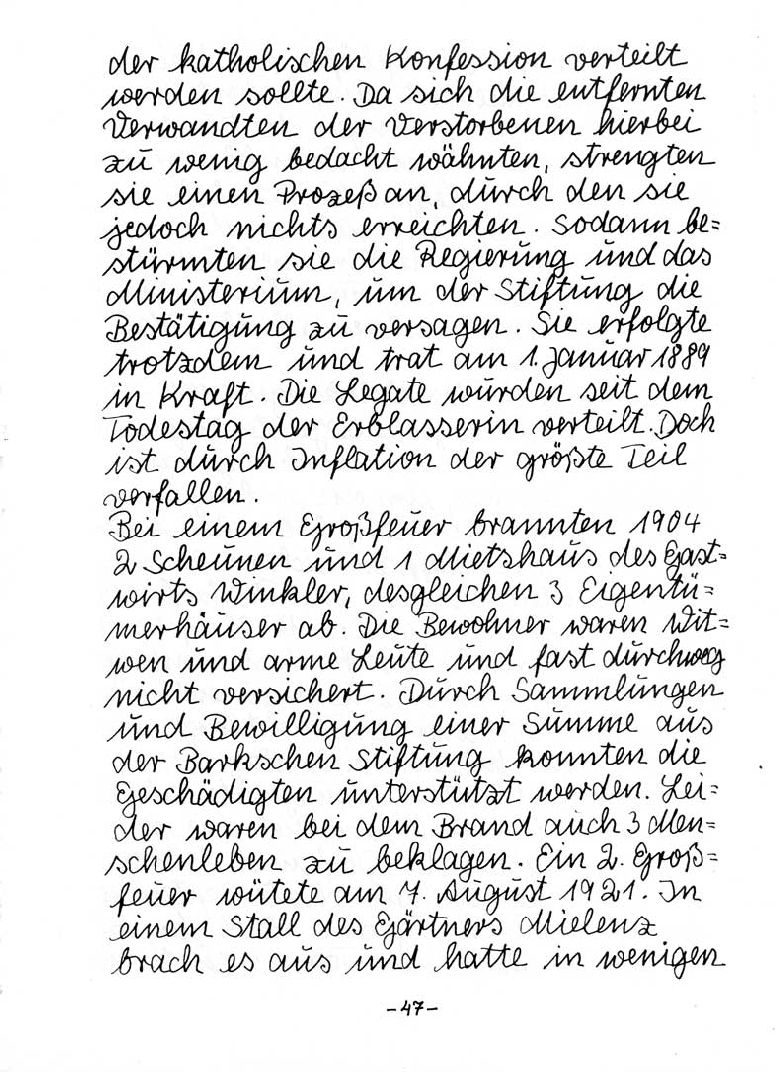 der katholischen Konfession verteilt
werden sollte. Da sich die entfernten
Verwandten der Verstorbenen hierbei
zu wenig bedacht wähnten, strengten
sie einen Prozeß an, durch den sie
jedoch nichts erreichten. Sodann be=
stürmten sie die Regierung und das
Ministerium, um der Stiftung die
Bestätigung zu versagen. Sie erfolgte
trotzdem und trat am 1. Januar 1889
in Kraft. Die Legate wurden seit dem
Todestag der Erblasserin verteilt. Doch
ist durch Inflation der größte Teil
verfallen.
Bei einem Großfeuer brannten 1904
2 Scheunen und 1 Mietshaus des Gast=
wirts Winkler, desgleichen 3 Eigentü=
merhäuser ab. Die Bewohner waren Wit=
wen und arme Leute und fast durchweg
nicht versichert. Durch Sammlungen
und Bewilligung einer Summe aus
der Barkschen Stiftung konnten die
Geschädigten unterstützt werden. Lei=
der waren bei dem Brand auch 3 Men=
schenleben zu beklagen. Ein 2. Groß=
feuer wütete am 7. August 1921. In
einem Stall des Gärtners Mielenz
brach es aus und hatte in wenigen
-47-